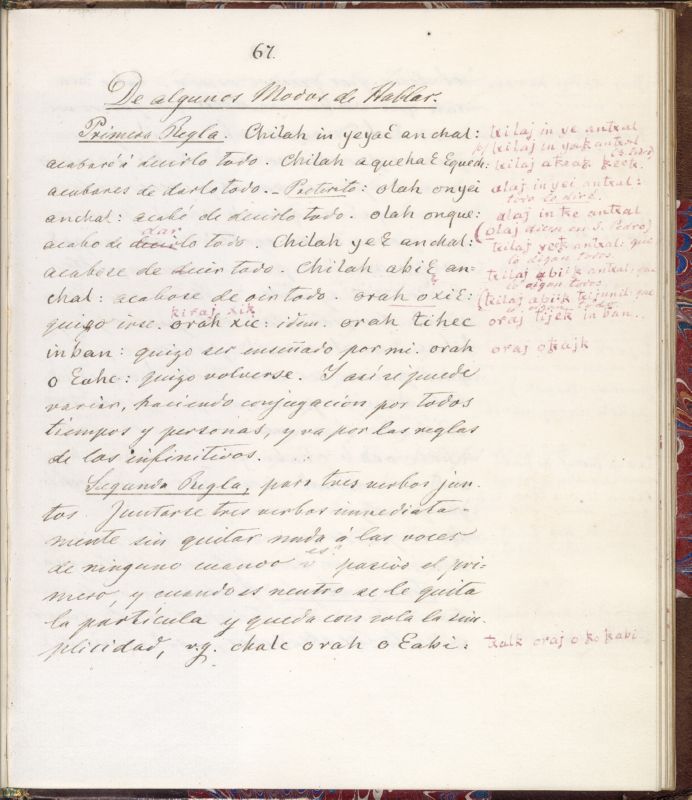 67.
De algunos Modos de Hablar.
Primera Regla. Chilah in yeyaƐ anchal:
acabará decirlo todo. Chilah aquehaƐ Equech:
acabares de darlo todo. _ Preterito: olah onyei
anchal: acabó de decirlo todo. olah onque:
dar
acabo de decirlo todo. Chilah yeƐ anchal:
acabóse de decir todo. Chilah abiƐ an-
chal: acabose de oir todo. orah oxiƐ:
kiraj xik
quizo irse. orah xic: idem. orah tihec
inban: quizo ser enseñado por mi. orah
o Ɛahc: quizo volverse. Y asi se puede
variar, haciendo conjugación por todos
tiempos y personas, y va por las reglas
de los infinitivos.
Segunda Regla, para tres verbos jun-
tos. Juntarse tres verbos inmediata-
mente sin quitar nada á las voces
es
de ninguno cuando pasivo el pri-
mero, y cuando es neutro se le quita
la partícula y queda con sola la sim-
plicidad, v.g. chalc orah o Ɛabi:
tkilaj in ye antxal
tkilaj in yak antxal
(S. Pedro)
tkilaj akeak keek.
alaj in yei antxal:
todo lo diré.
alaj in ke antxal
(olaj dicen en S. Pedro)
tkilaj yek antxal: que
lo digan todos
tkilaj abiik antxal: que
lo oigan todos
(tkilaj abiik tkijunil: que
oraj tijek in ban.
oraj okajk
txalk oraj o kokabi